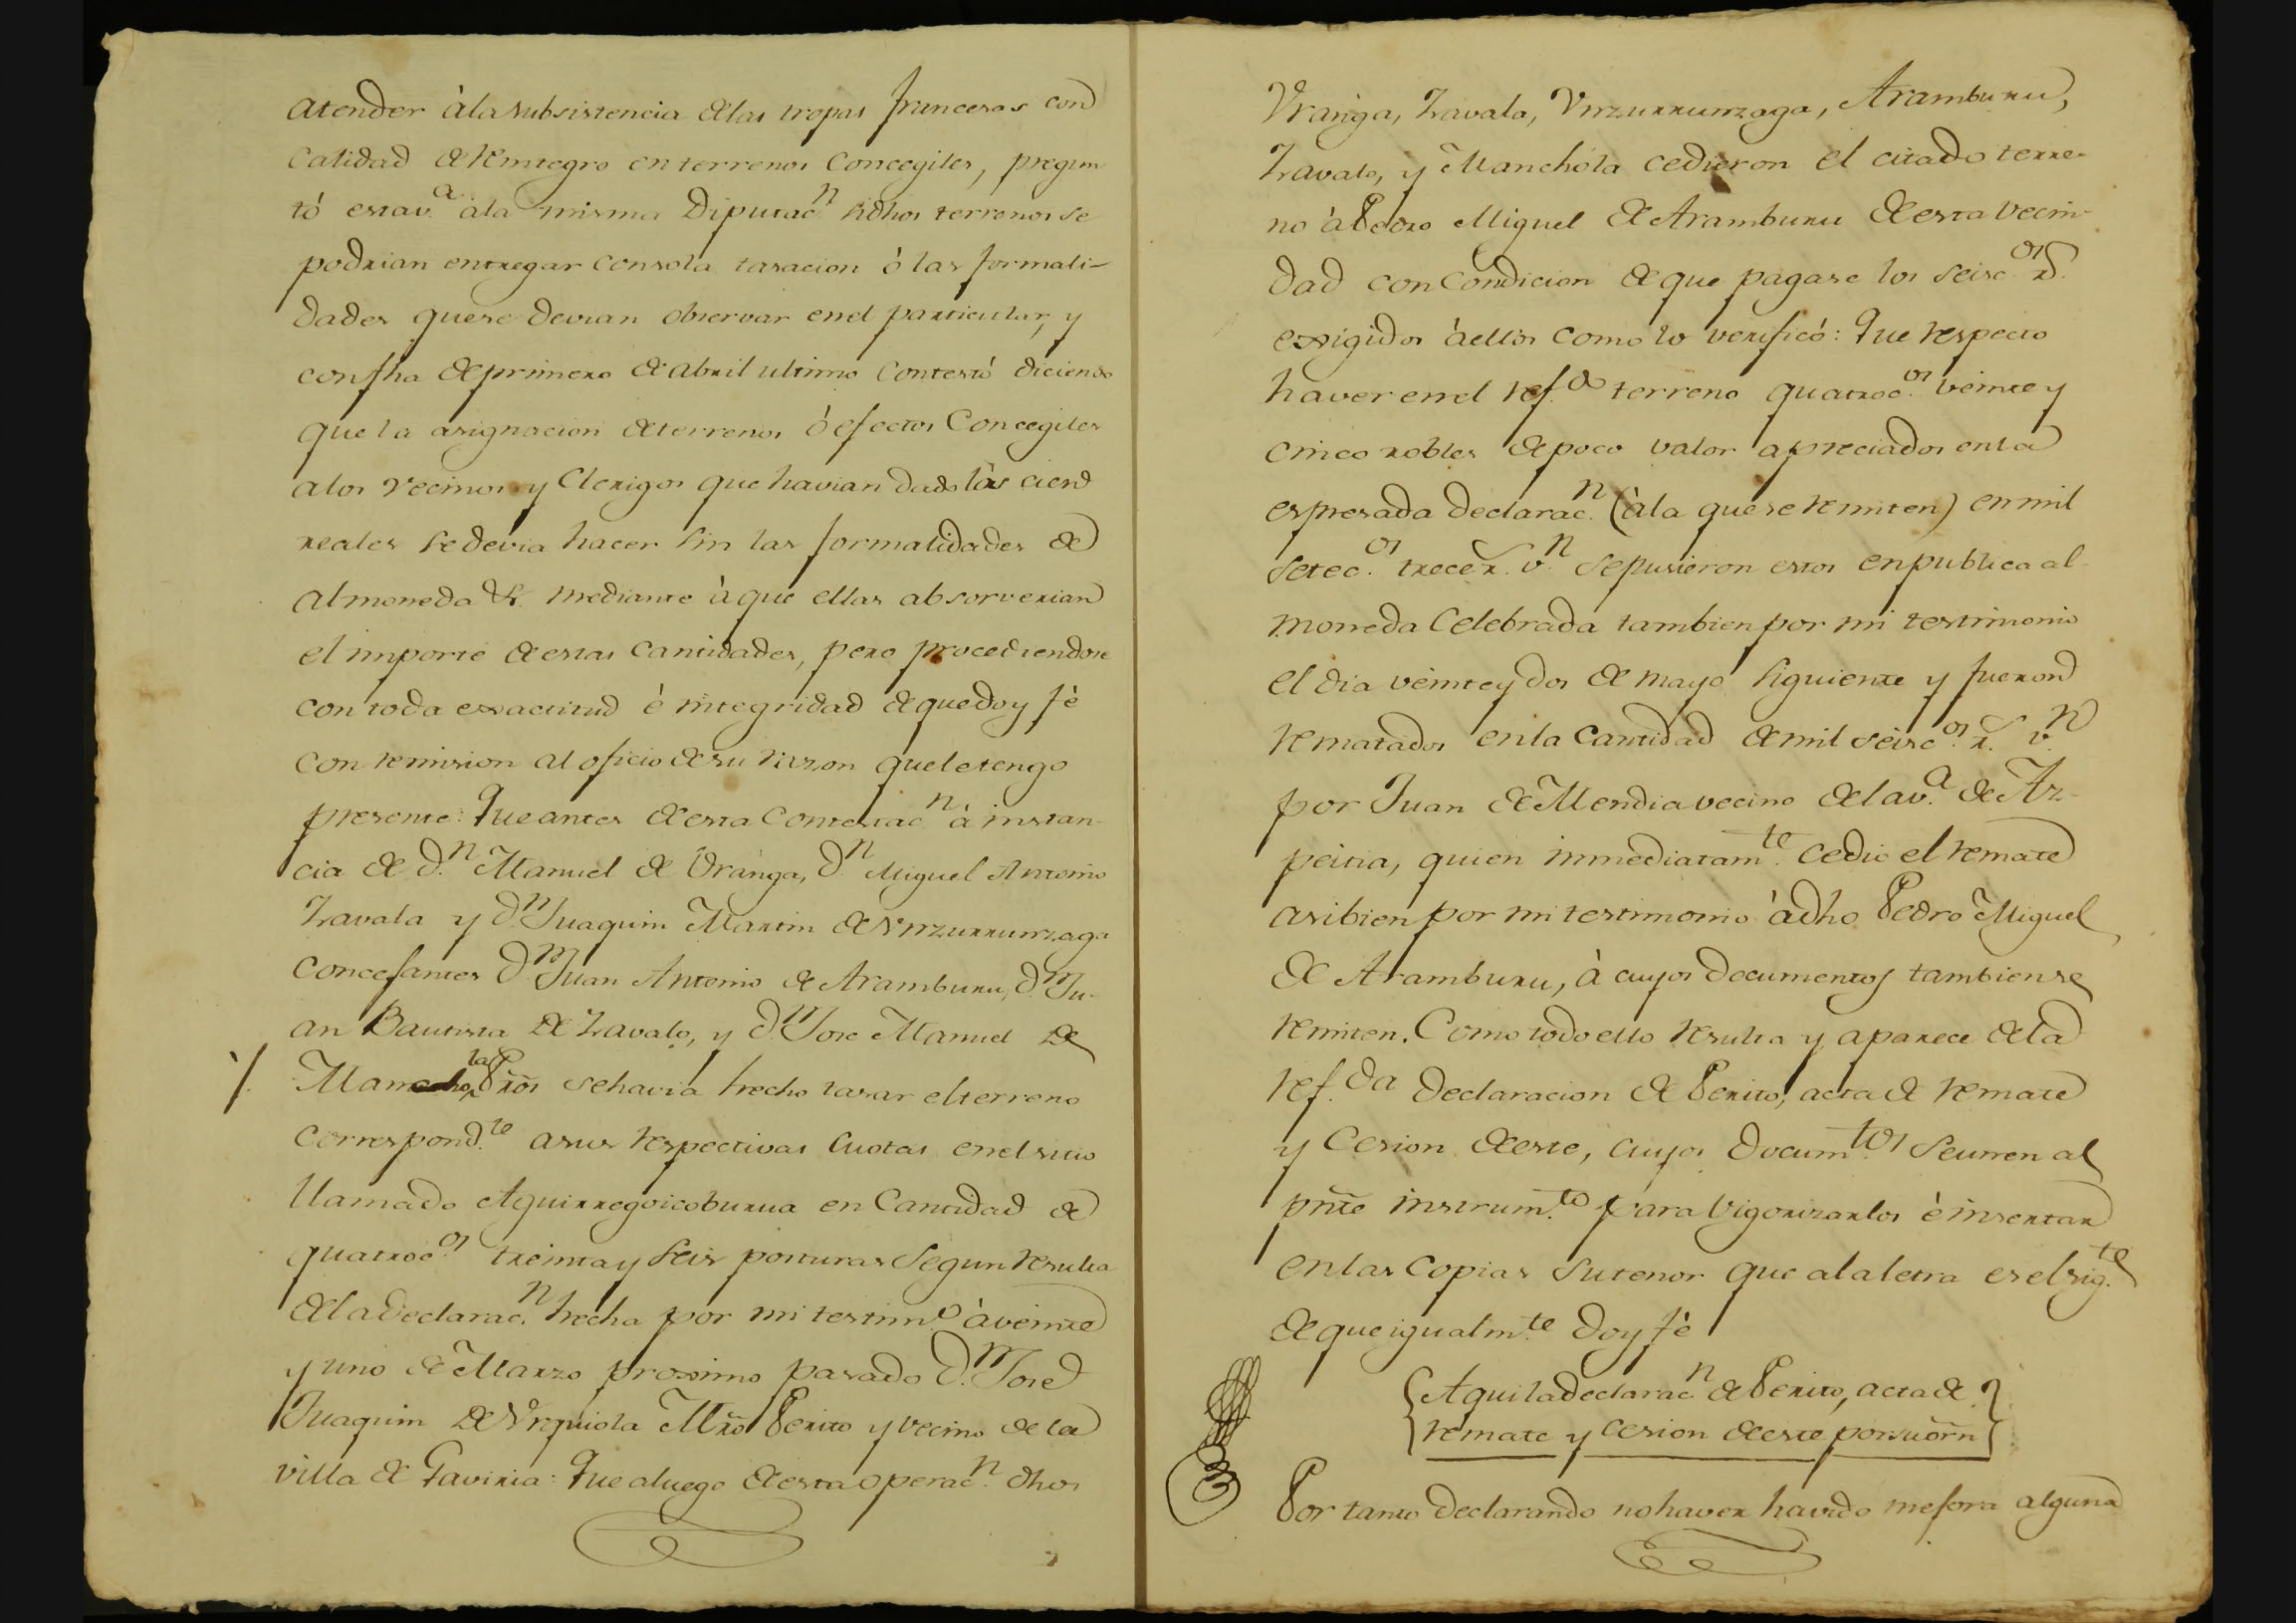 atender à la subsistencia de las tropas francesas con
calidad de Reintegro en terrenos Concegiles, pregun
tó esta v.ª à la misma Diputac.n si dhos terrenos se
podrian entregar con sola tasacion ò las formali-
dades que se devian observar en el particular, y
con fha de primero de Abril ultimo contestó diciendo
que la asignacion de terrenos ó efectos Concegiles
a los vecinos y Clerigos que havian dado los cien
reales se devia hacer sin las formalidades de
almoneda &. mediante à que ellas absorverian
el importe de estas cantidades, pero procediendose
con toda exactitud é integridad de que doy fé
con remision al oficio de su razon que le tengo
presente: Que antes de esta Contestac.n à instan-
cia de D.n Manuel de Vranga, D.n Miguel Antonio
Zavala y D.n Juaquin Martin de Vnzurrunzaga
Concejantes D.n Juan Antonio de Aramburu, D.n Ju-
an Bautista de Zavala, y D.n Jose Manuel de
Manchola Pr̃os se havia hecho tasar el terreno
correspond.te a sus Respectivas Cuotas en el sitio
llamado Aguirregoicoburua en Cantidad de
quatroc.os treinta y seis posturas Segun Resulta
de la Declarac.n hecha por mi testim.o à veinte
y uno de Marzo proximo pasado D.n Jose
Juaquin de Vrquiola Mr̃o Perito y vecino de la
villa de Gaviria: Que a luego de esta operac.n dhos
Vranga, Zavala, Vnzurrunzaga, Aramburu,
Zavala, y Manchola cedieron el citado terre-
no à Pedro Miguel de Aramburu de esta vecin-
dad con Condicion de que pagase los seisc.os r.s
exigidos à ellos como lo verificó: Que Respecto
haver en el ref.do terreno quatroc.os veinte y
cinco robles de poco valor apreciados en la
espresada declarac.n (à la que se Remiten) en mil
setec.os trece r.s v.n se pusieron estos en publica al-
moneda Celebrada tambien por mi testimonio
el dia veinte y dos de mayo siguiente y fueron
Rematados en la Cantidad de mil seisc.os r.s v.n
por Juan de Mendia vecino de la v.ª de Az-
peitia, quien inmediatam.te cedio el Remate
asibien por mi testimonio à dho Pedro Miguel
de Aramburu, à cuyos documentos tambien se
Remiten. Como todo ello Resulta y aparece de la
Ref.da Declaracion de Perito, acta de Remate
y Cesion de este, cuyos Docum.tos se unen al
pñte instrum.to para Vigorizarlos è insertar
en las Copias su tenor que a la letra es el sig.te
de que igualm.te doy fé
Aqui la declarac.n de Perito, acta de
Remate y Cesion de este por su orñ
Por tanto declarando no haver havido mejora alguna